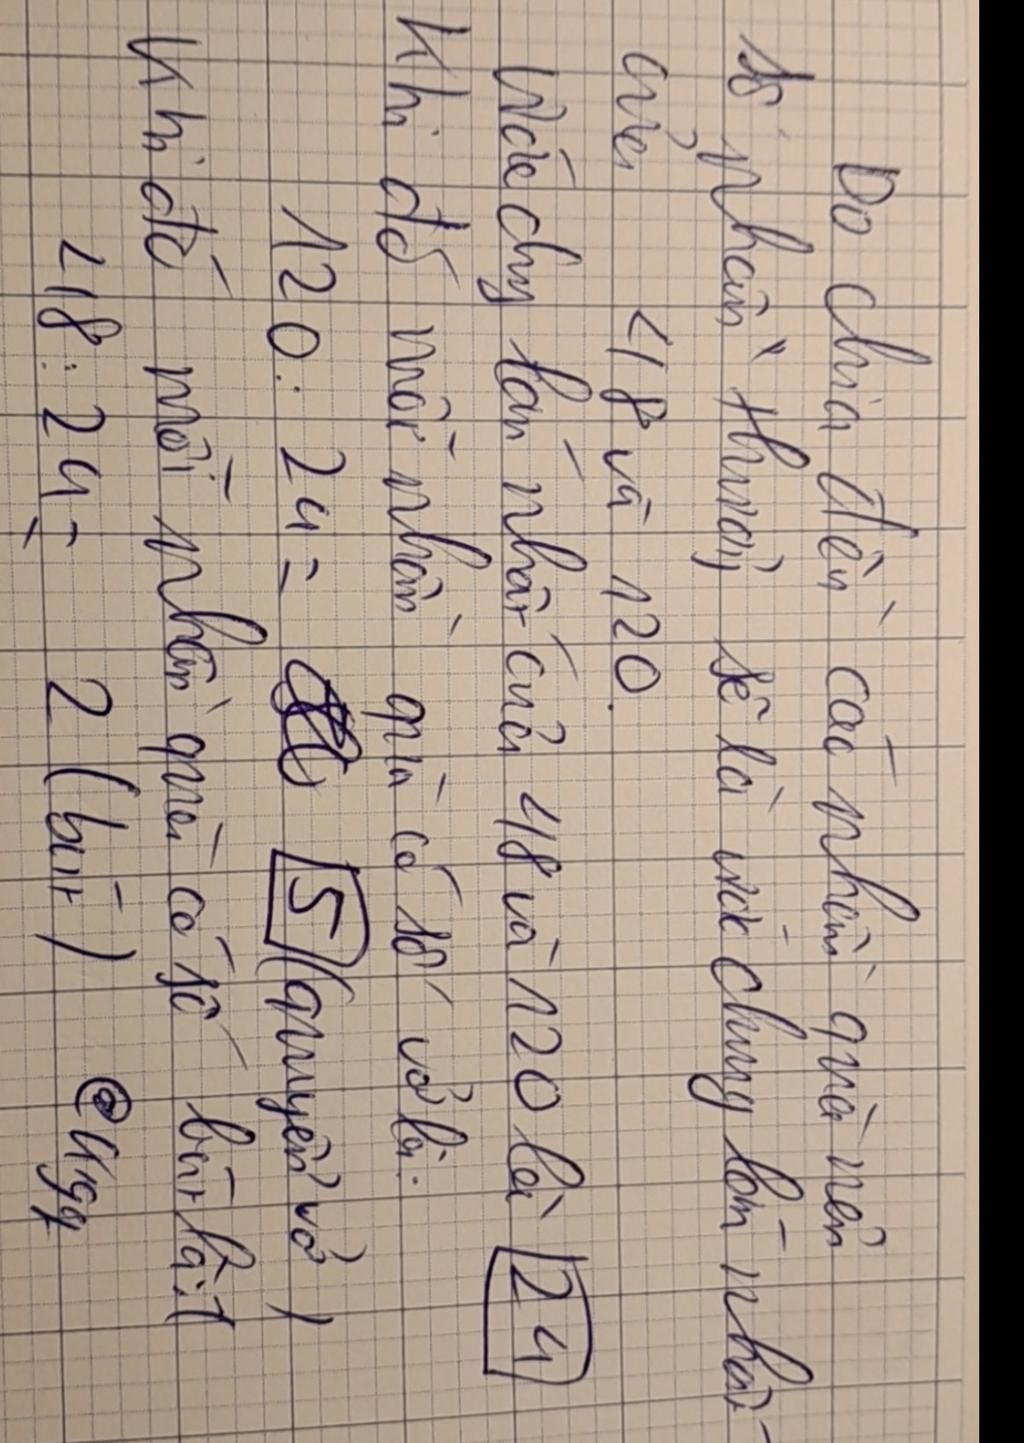 Do chia đều các phần quà nên
số phần thưởng sẽ là ước chung lớn nhất
của 48 và 120.
Ước chung lớn nhất của 48 và 120 là 24
Khi đó mỗi phần quà có số vở là:
120 : 24 = 5 (quyển vở)
Khi đó mỗi phần quà có số bút là:
48 : 24 = 2 (bút)